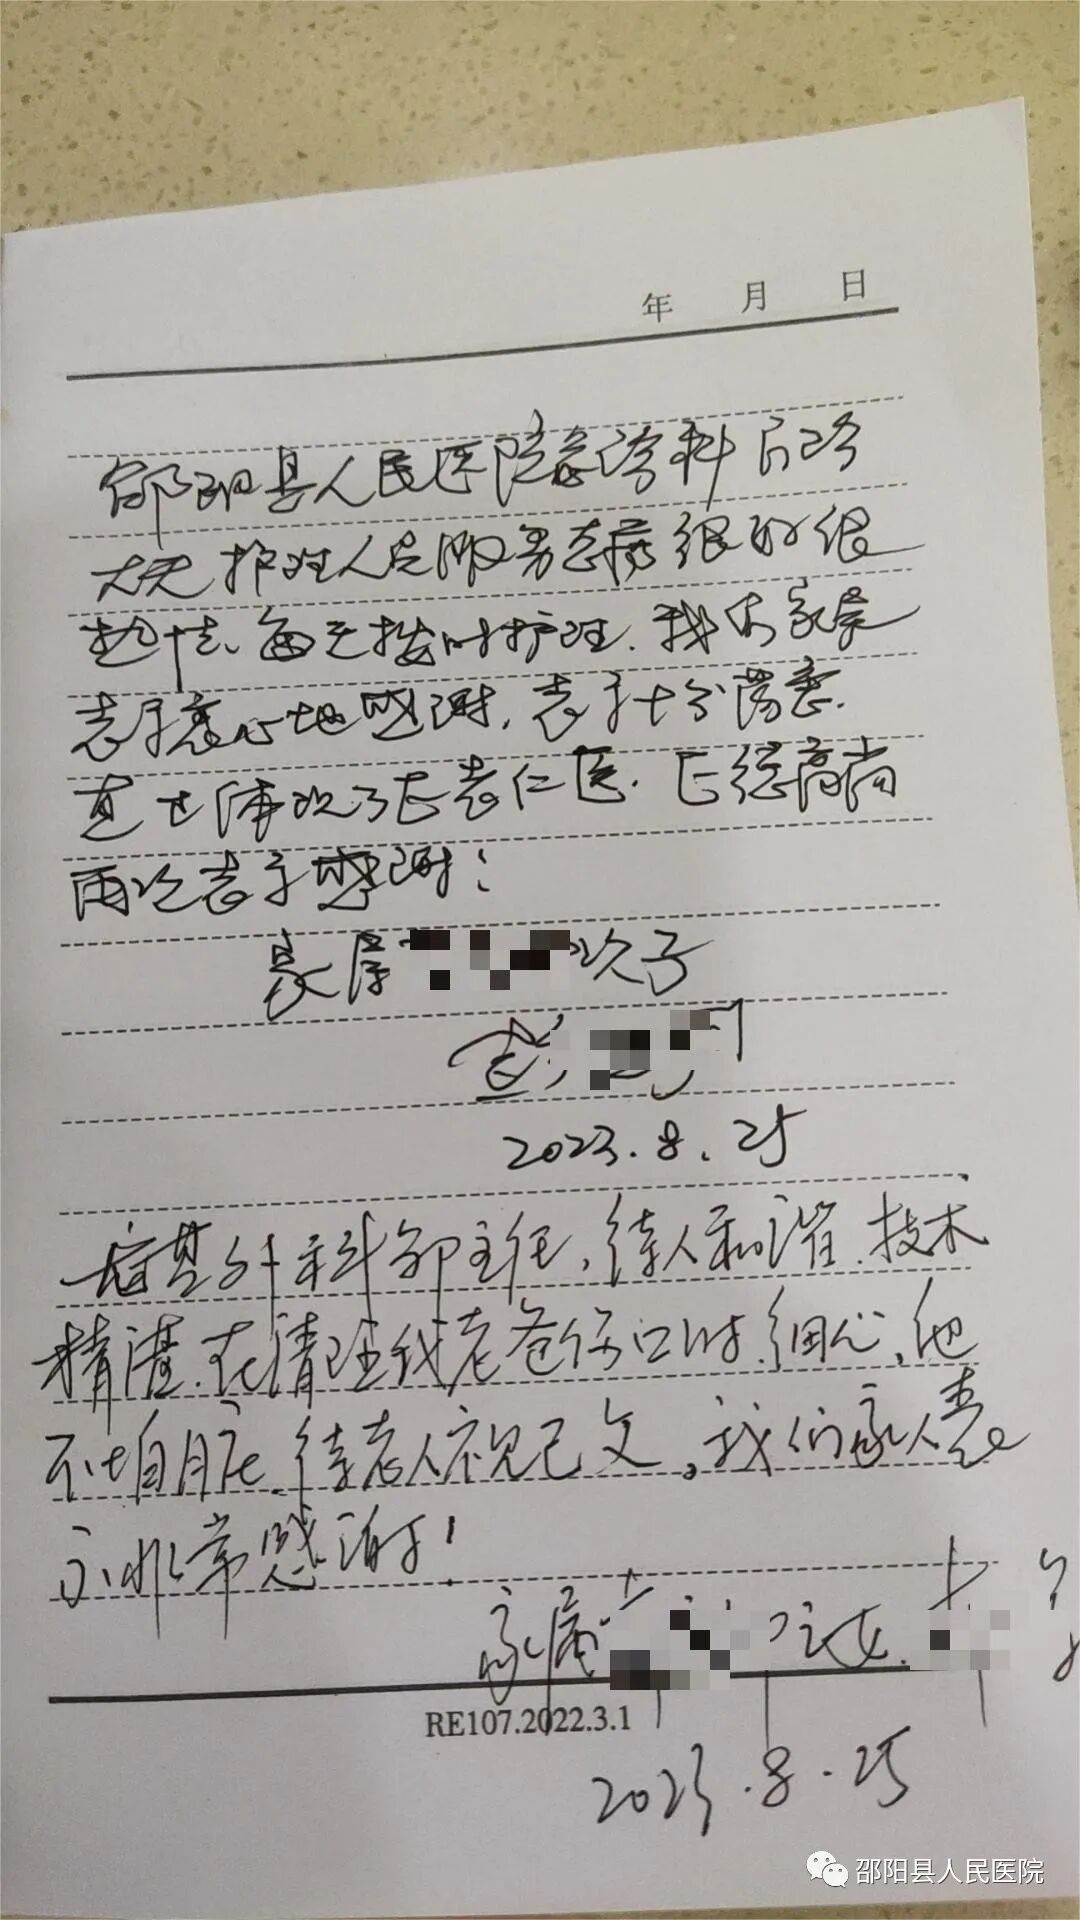 年 月 日
邵阳县人民医院急诊科
护理人员服务态度很好很
热情、每天按时护理.我本家属
表示衷心地感谢,表示十分
医.医德高尚
再次表示感谢!
家属 次子
2023.8.25
外科邹主任,待人和谐.技术
精湛.在清理我老爸伤口时.细心,他
不怕脏.待老人视己父。我们家人表
示非常感谢!
家属 之女.
RE107.2022.3.1
2023.8.25
邵阳县人民医院